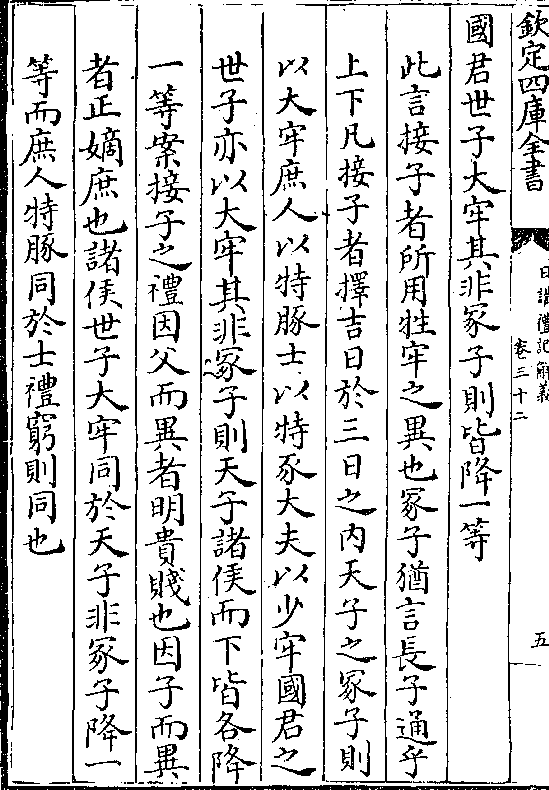 欽定四庫全書
日講禮記解義
卷三十二
五
國君世子大牢其非冢子則皆降一等
此言接子者所用牲牢之異也冢子猶言長子通乎
上下凡接子者擇吉日於三日之內天子之冢子則
以大牢庶人以特豚士以特豕大夫以少牢國君之
世子亦以大牢其非冢子則天子諸侯而下皆各降
一等案接子之禮因父而異者明貴賤也因子而異
者正嫡庶也諸侯世子大牢同於天子非冢子降一
等而庶人特豚同於士禮窮則同也